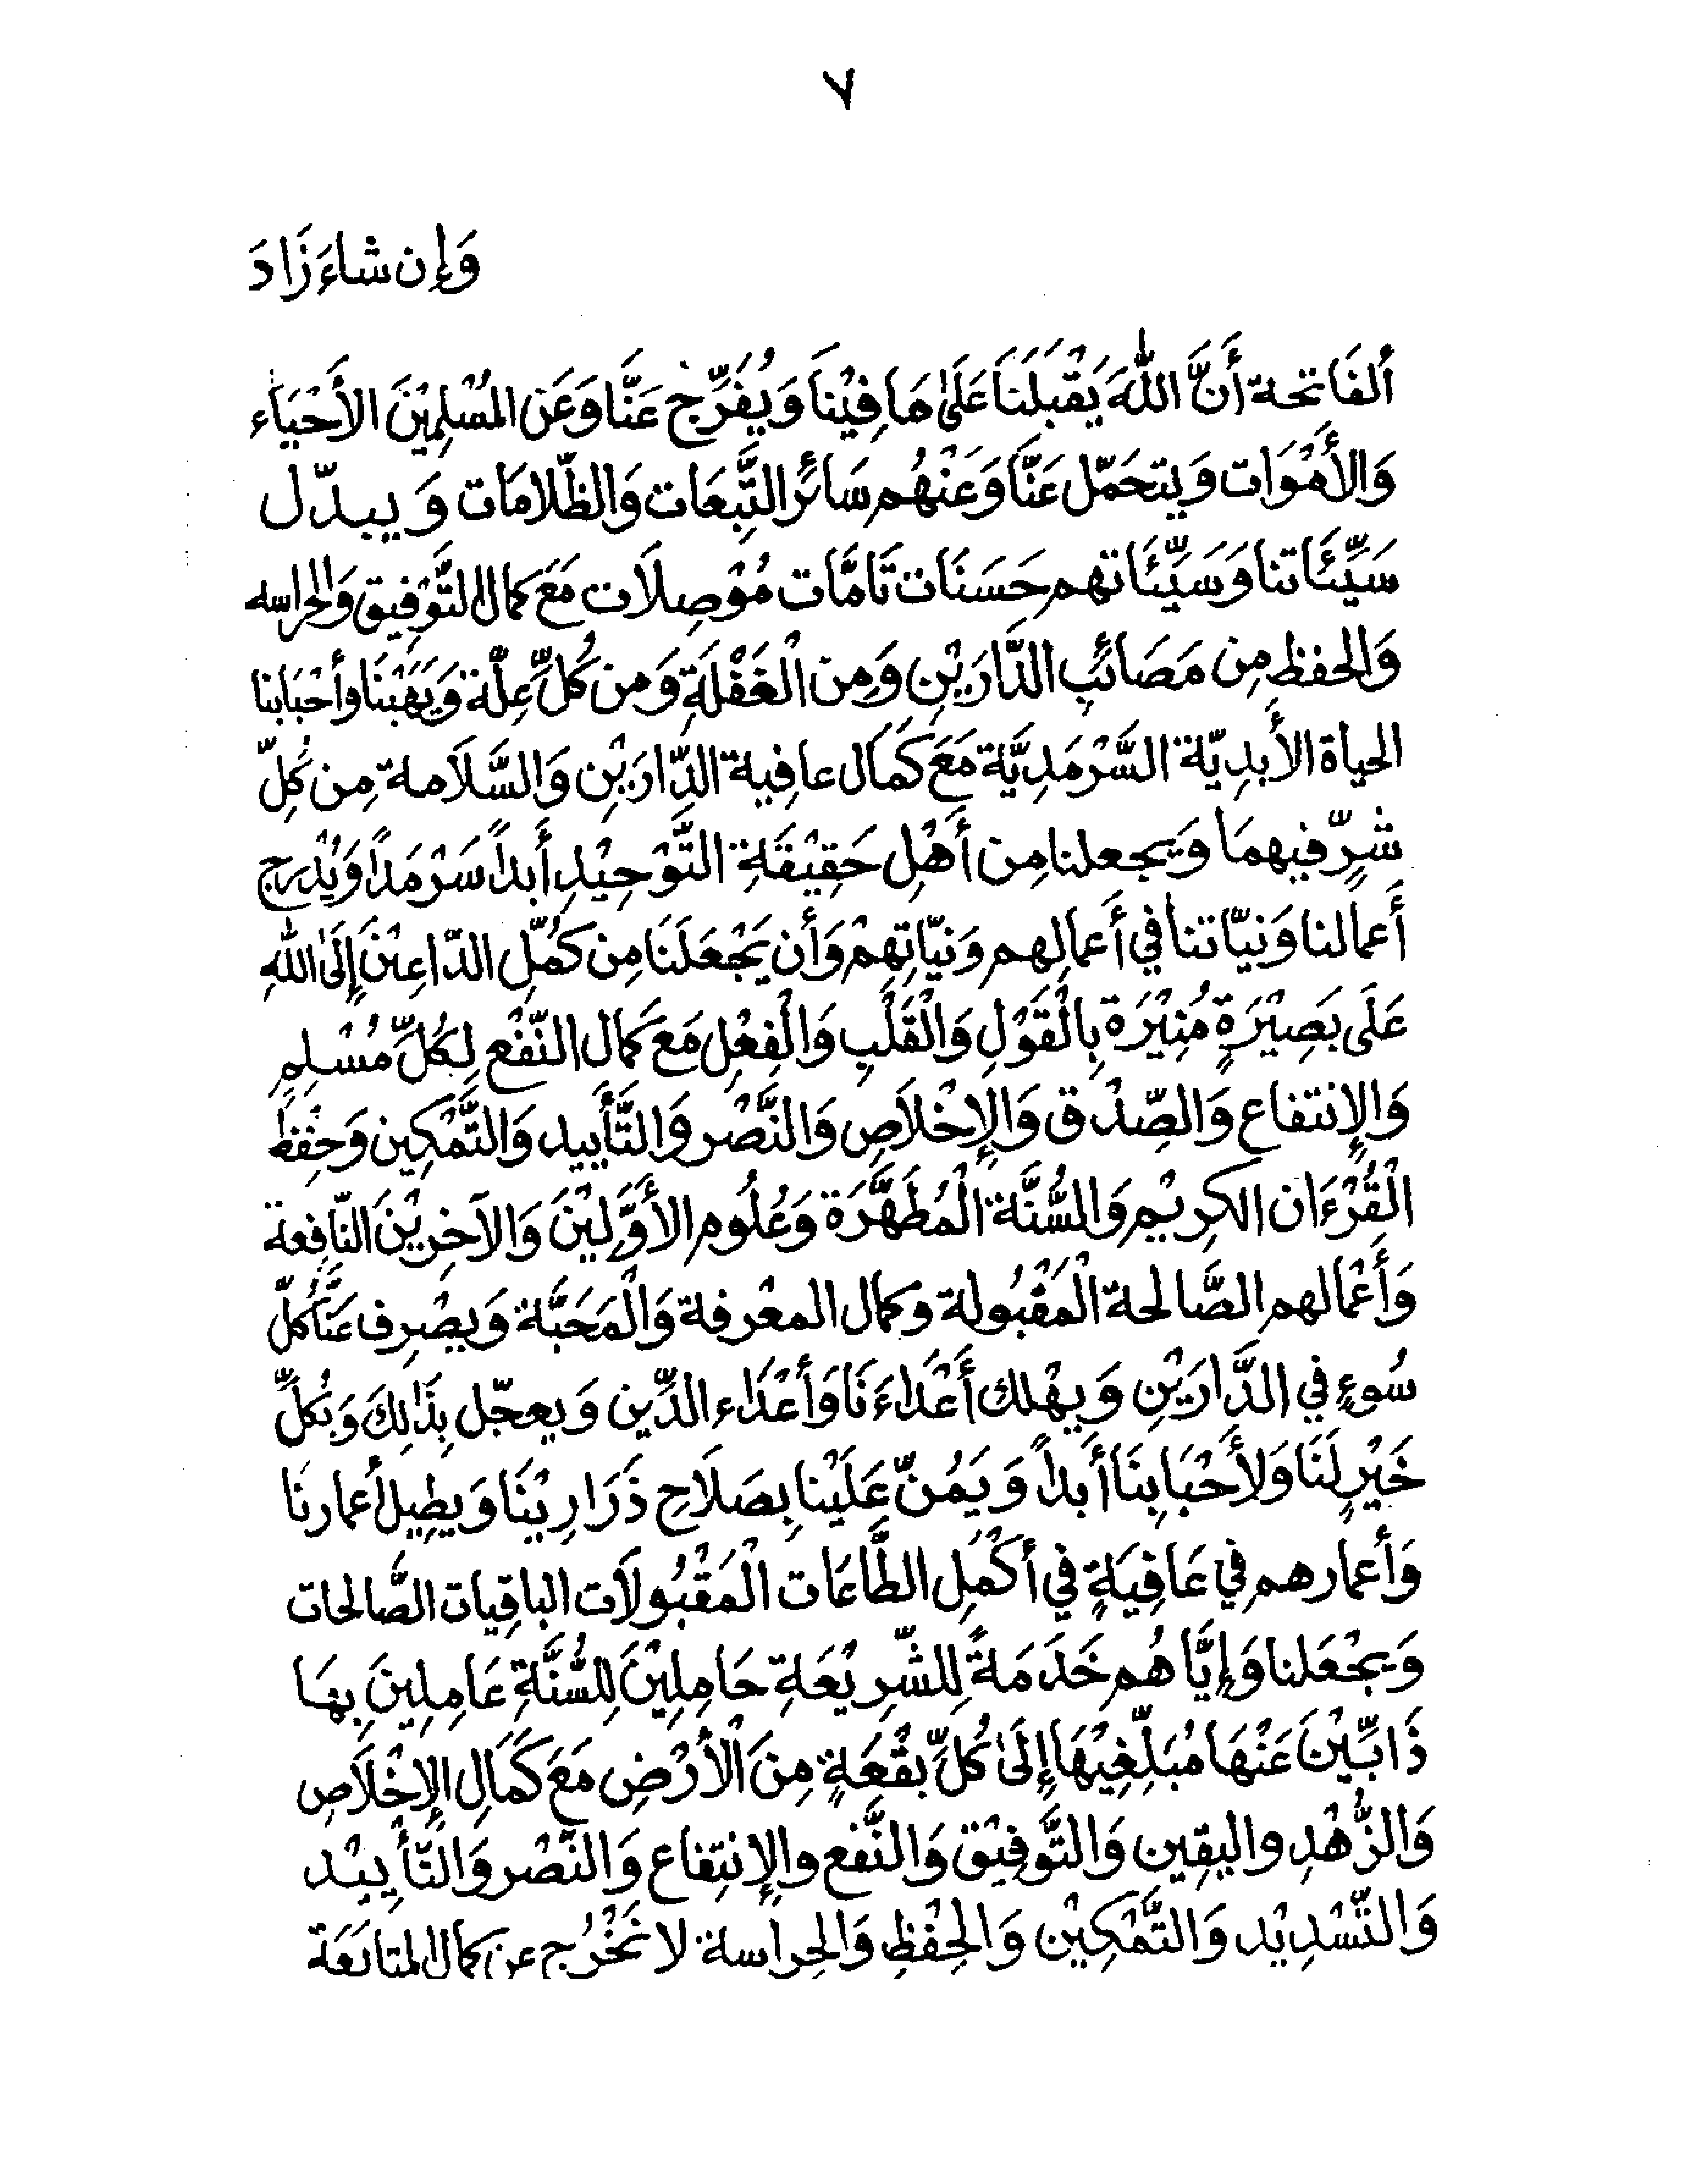 ٧
وَإن شاءَ زَادَ
ألفَاتحة أَنَّ اللّٰهَ يَقْبَلَنَا عَلَىٰ مَا فِيْنَا وَيُفَرِّج عَنَّا وَعَن المُسْلِمِيْنَ الأَحْيَاء
وَالأَمْوَات وَيتحَمّل عَنَّا وَعَنْهُم سَائرَ التَّبِعَات وَالظّلامَات وَيبدّل
سَيِّئَاتنا وَسَيِّئَاتهم حَسَنَات تَامَّات مُوْصِلَات مَعَ كَمال التَّوْفِيق وَالحراسه
وَالحفظ مِن مَصَائبِ الدَّارَيْنِ وَمِن الْغَفْلَةِ وَمِن كُلِّ عِلّة وَيَهَبَنَا وأحْبَابنا
الحياة الأبدِيّة السَّرْمَدِيَّة مَعَ كَمَال عافِية الدّارَيْنِ وَالسَّلَامة مِن كُلِّ
شرٍّ فيهمَا وَيَجعلنا مِن أَهْلِ حَقِيْقَةِ التَّوْحِيْدِ أَبداً سَرْمَداً وَيُدْرج
أَعمالنا وَنيّاتنا في أَعمالِهم وَنيّاتِهِمْ وَأن يَجْعَلَنَا مِن كُمّلِ الدّاعِيْنَ إِلَىٰ اللّٰهِ
عَلَى بَصِيْرَةٍ مُنِيْرَة بِالْقَوْلِ وَالْقَلْبِ وَالْفِعْلِ مَعَ كَمال النّفْع لِكُلِّ مُسْلِمٍ
وَالإِنتفاع وَالصِّدْق وَالإِخْلَاصِ وَالنَّصْر وَالتَّأْييد وَالتَّمْكِين وَحِفْظ
الْقُرْءَان الكرِيْم وَالسُّنَّة الْمُطَهَّرَة وَعُلُوم الأَوَّلِيْنَ وَالآخرِيْنَ النَّافِعة
وَأَعْمالهم الصَّالحة الْمَقْبُولة وَكمال المعْرفة وَالْمَحَبَّة وَيصْرِف عَنَّا كُلّ
سُوءٍ في الدَّارَيْنِ وَيهْلك أَعْدَاءَنَا وَأَعْدَاء الدِّين وَيعجّل بِذَٰلِكَ وَبكُلِّ
خَيْرٍ لَنَا وَلأَحْبَابِنَا أَبداً وَيَمُنّ عَلَيْنا بِصَلَاحِ ذَرَارِيْنَا وَيطِيل أعمارنَا
وَأَعمارهم في عَافِيَةٍ في أكْمَلِ الطَّاعَات الْمَقْبُولَات الباقِيات الصَّالحات
وَيجْعَلنا وَإِيَّاهُم خَدَمَةً لِلشّرِيْعَةِ حَامِلِيْنَ لِلسُّنَّةِ عَامِلِينَ بِهَا
ذَابِّيْنَ عَنْهَا مُبَلِّغِيْهَا إِلَىٰ كُلِّ بقْعَةٍ مِنَ الْأَرْضِ مَعَ كَمَالِ الإِخْلَاصِ
وَالزُّهْدِ واليقِين وَالتَّوفِيْق وَالنَّفع والإنتِفاع وَالنَّصْر وَالتّأْيِيْد
وَالتَّسْدِيْد وَالتَّمْكِيْن وَالحِفْظِ وَالحِراسة لا نَخْرُج عن كمال المتابَعَة